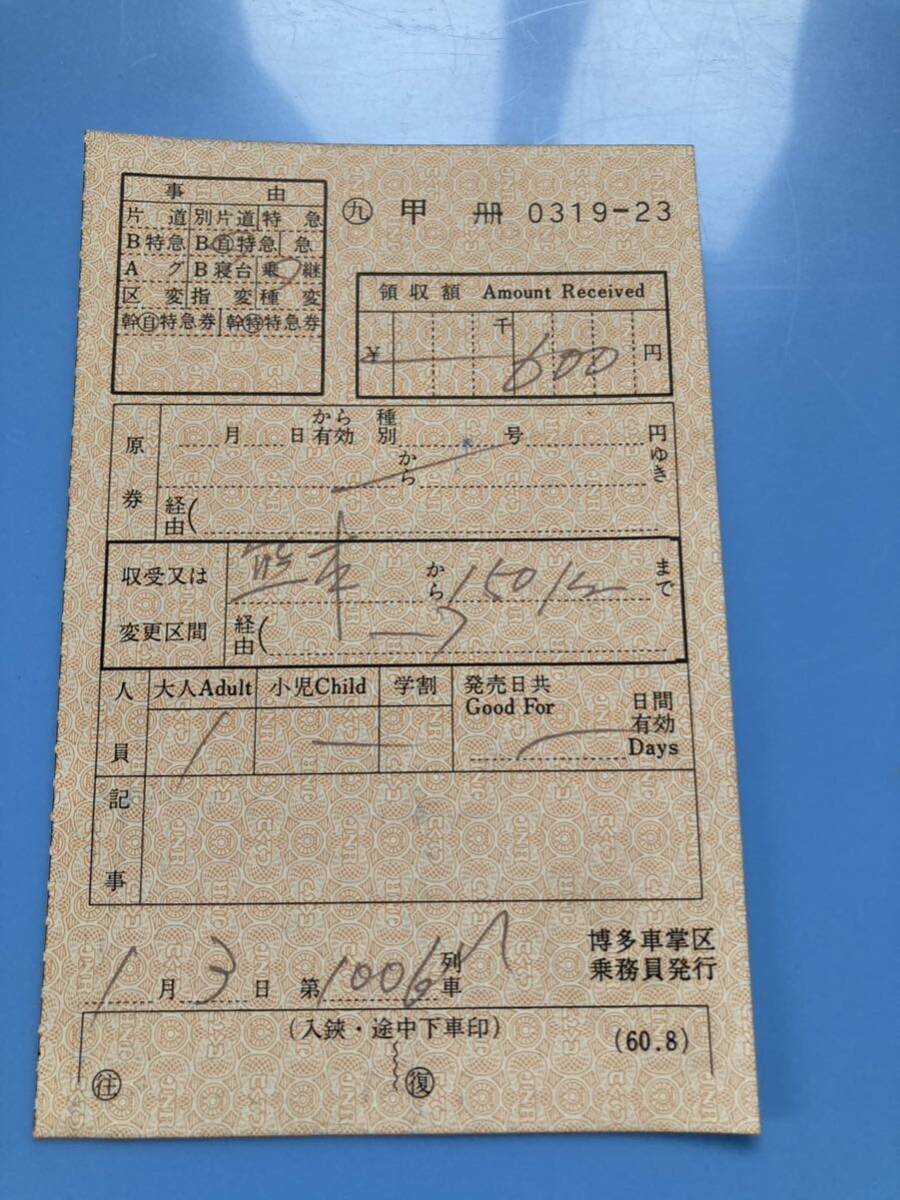 事 由
片道 別片道 特急
B特急 B自特急 急
Aグ B寝台 乗継
区変 指変 種変
幹自特急券 幹特特急券
九 甲 冊 0319-23
領収額 Amount Received
千
¥ 600 円
原券
月 日 から有効 種別 号 円
から ゆき
経由(
収受又は変更区間
熊本 から 150km まで
経由(
人員
大人Adult 小児Child 学割
1
発売日共 Good For 日間有効 Days
記事
1月3日 第1006M列車
博多車掌区
乗務員発行
(入鋏・途中下車印)
(60.8)
往 復